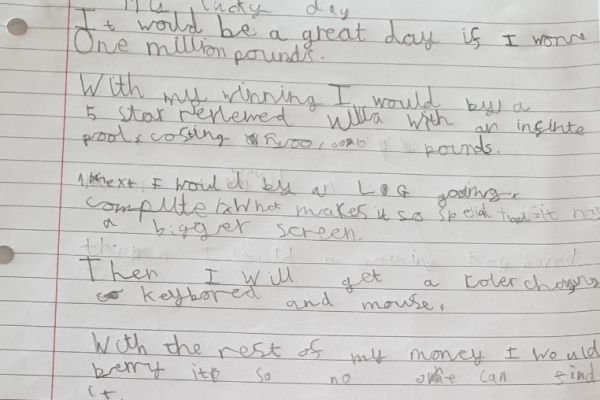 lucky day
It would be a great day if I wonn
One million pounds.
With my winning I would by a
5 star revlewed villa with an infinte
pool, cosing 500,000 pounds.
Next I would by a LOG goaing
computer. What makes it so special it has
a bigger screen.
Then I will get a coler chang
keybored and mouse.
With the rest of my money I would
berry it so no one can find
it.